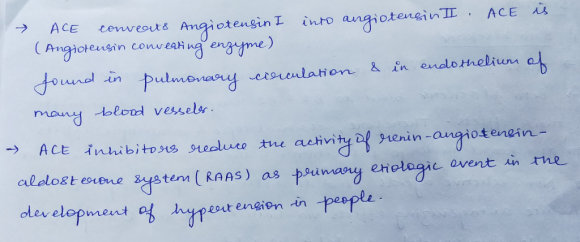 → ACE converts Angiotensin I into angiotensin II. ACE is
(Angiotensin converting enzyme)
found in pulmonary circulation & in endothelium of
many blood vessels.
→ ACE inhibitors reduce the activity of renin-angiotensin-
aldosterone system (RAAS) as primary etiologic event in the
development of hypertension in people.